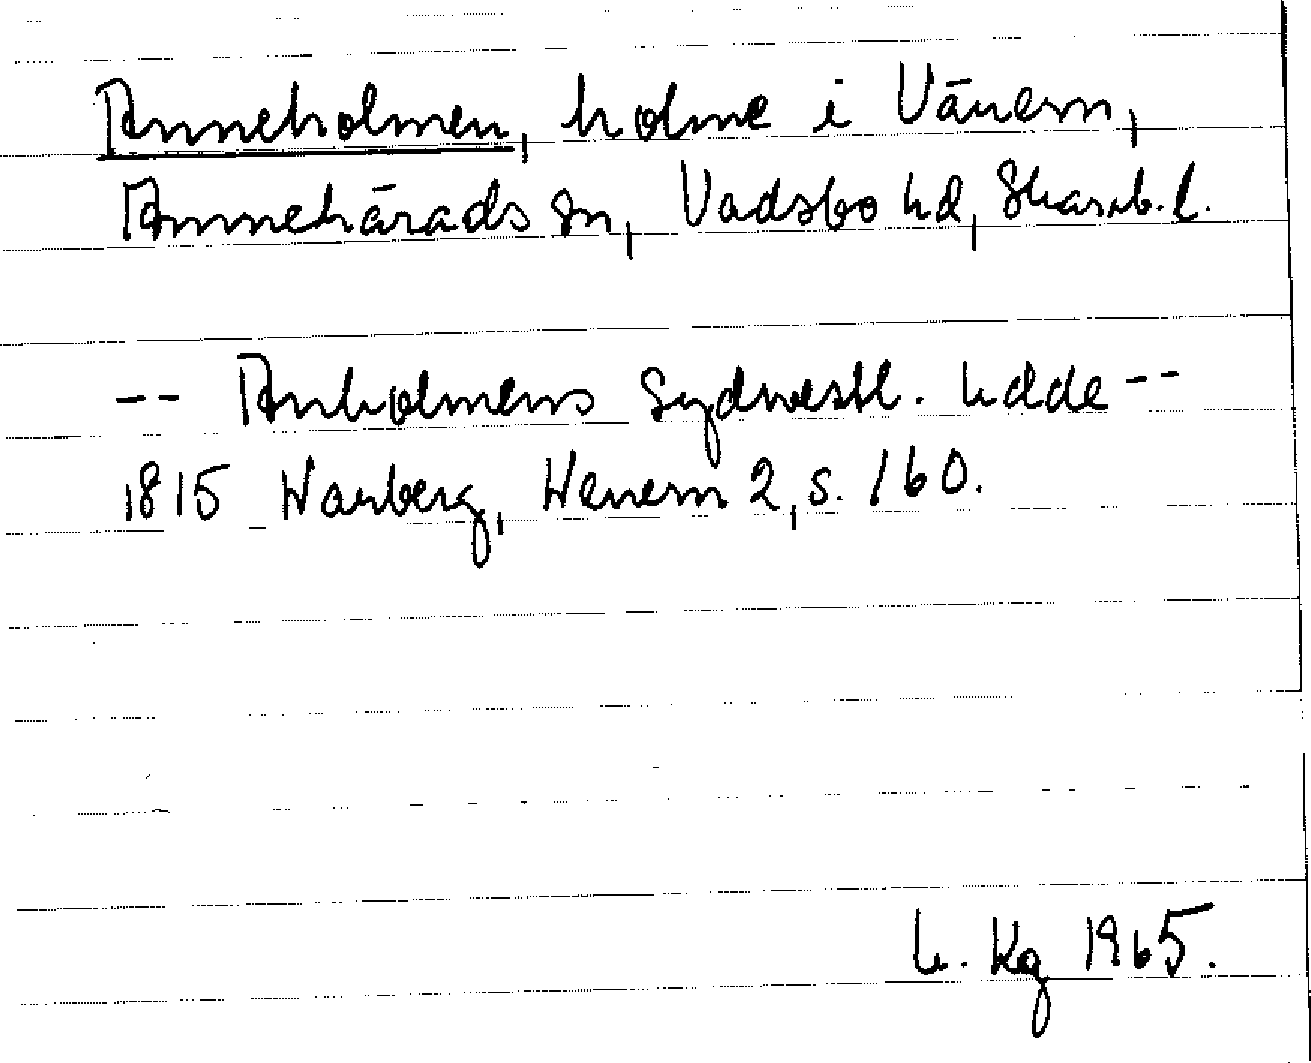 Anneholmen, holme i Vänern,
Amnehärads sn, Vadsbo hd, Skarab. l.
-- Anholmens Sydvestl. Udde --
1815 Warberg, Wenern 2, s. 160.
Kg 1965.